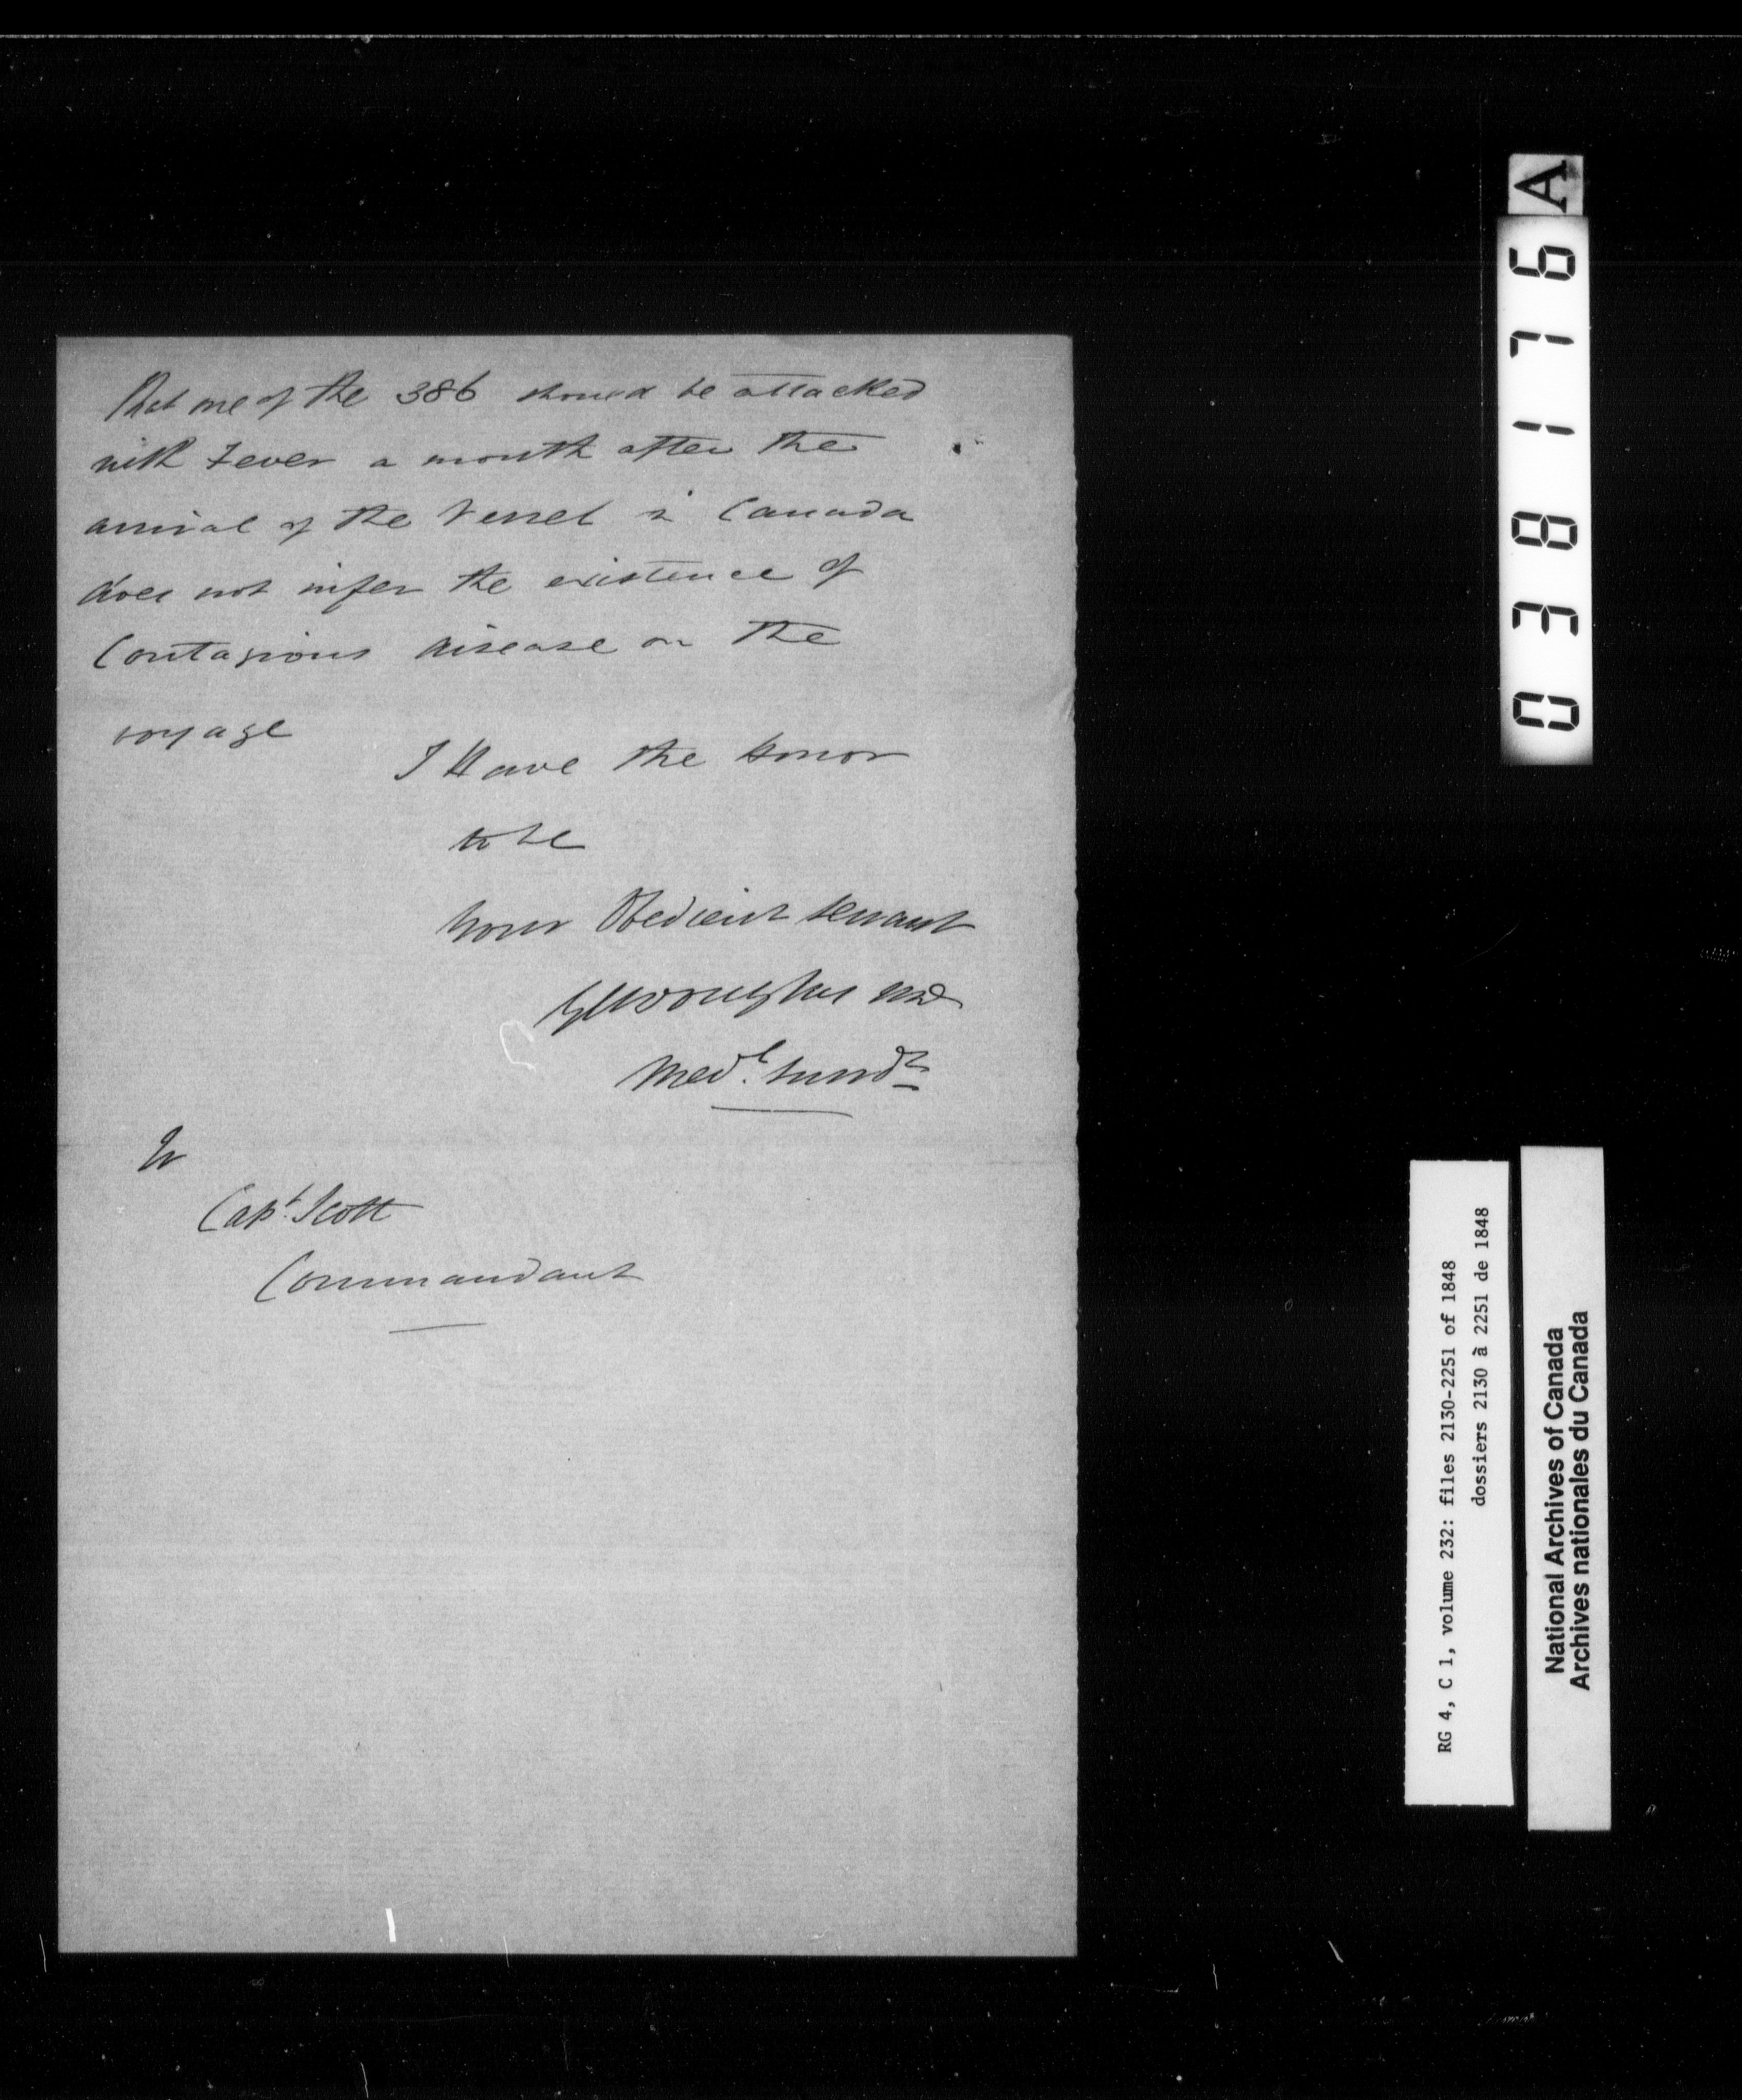 that one of the 386 should be attacked
with Fever a month after the
arrival of the Vessel in Canada
does not infer the existence of
Contagious disease on the
voyage
I Have the honor
to be
Your Obedient servant
GM Douglas MD
Medl. Supndt
To
Capt. Scott
Commandant
038176 A
RG 4, C 1, volume 232: files 2130-2251 of 1848
dossiers 2130 à 2251 de 1848
National Archives of Canada
Archives nationales du Canada